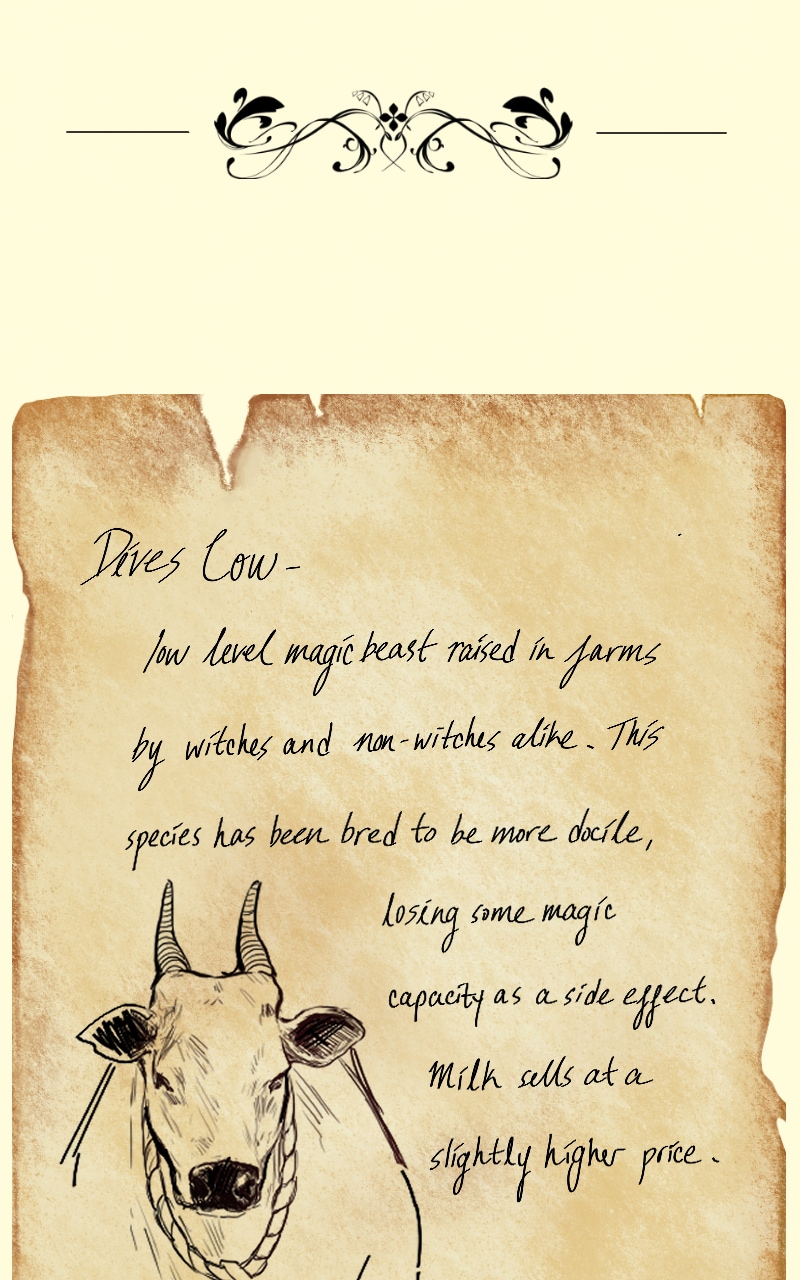 Dives Cow-
low level magic beast raised in farms
by witches and non-witches alike. This
species has been bred to be more docile,
losing some magic
capacity as a side effect.
Milk sells at a
slightly higher price.